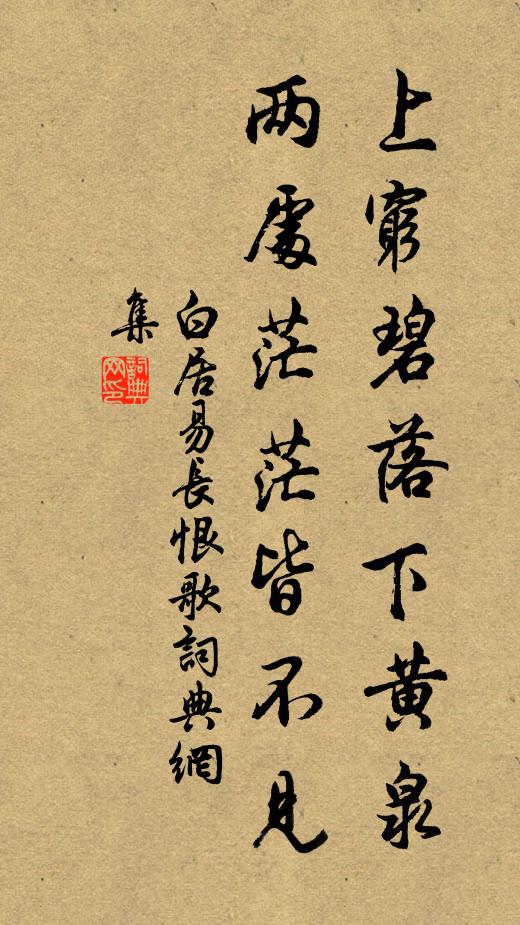 上窮碧落下黃泉
两處茫茫皆不見
白居易長恨歌詞典網
集
詞典网印